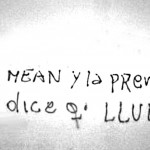 MEAN y la PREN
dice q' LLUE